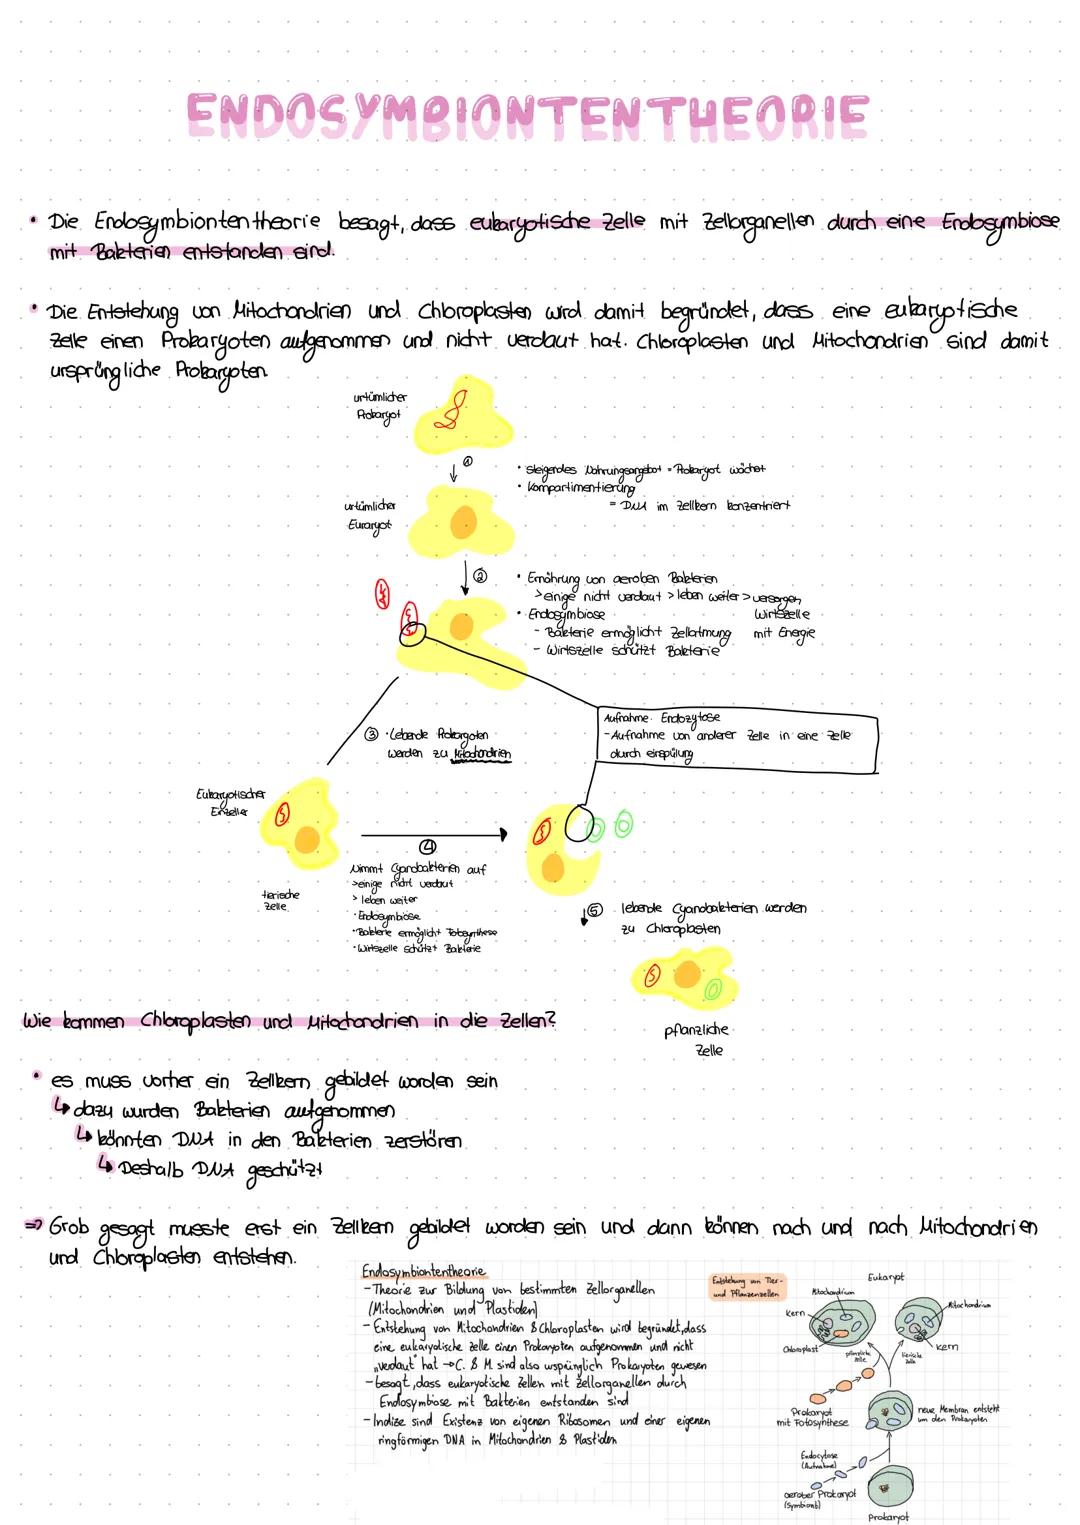 ENDOSYMBIONTENTHEORIE
• Die Endosymbiontentheorie besagt, dass eukaryotische Zelle mit Zellorganellen durch eine Endosymbiose
mit Bakterien entstanden sind.
• Die Entstehung von Mitochondrien und Chloroplasten wird damit begründet, dass eine eukaryotische
Zelle einen Prokaryoten aufgenommen und nicht verdaut hat. Chloroplasten und Mitochondrien sind damit
ursprüngliche Prokaryoten.
urtümlicher
Prokaryot
①
• steigendes Nahrungsangebot = Prokaryot wächst
• Kompartimentierung
= DNA im Zellkern konzentriert
urtümlicher
Euraryot
②
• Ernährung von aeroben Bakterien
> einige nicht verdaut > leben weiter > versorgen
Wirtszelle
mit Energie
• Endosymbiose
- Bakterie ermöglicht Zellatmung
- Wirtszelle schützt Bakterie
Aufnahme: Endozytose
- Aufnahme von anderer Zelle in eine Zelle
durch einspülung
③ • Lebende Prokaryoten
werden zu Mitochondrien
Eukaryotischer
Einzeller
tierische
Zelle
④
Nimmt Cyanobakterien auf
> einige nicht verdaut
> leben weiter
• Endosymbiose
• Bakterie ermöglicht Fotosynthese
• Wirtszelle schützt Bakterie
⑤ lebende Cyanobakterien werden
zu Chloroplasten
pflanzliche
Zelle
Wie kommen Chloroplasten und Mitochondrien in die Zellen?
• es muss vorher ein Zellkern gebildet worden sein
↳ dazu wurden Bakterien aufgenommen
↳ könnten DNA in den Bakterien zerstören
↳ Deshalb DNA geschützt
⇒ Grob gesagt musste erst ein Zellkern gebildet worden sein und dann können nach und nach Mitochondrien
und Chloroplasten entstehen.
Endosymbiontentheorie
- Theorie zur Bildung von bestimmten Zellorganellen
(Mitochondrien und Plastiden)
- Entstehung von Mitochondrien & Chloroplasten wird begründet, dass
eine eukaryotische Zelle einen Prokaryoten aufgenommen und nicht
„verdaut" hat → C. & M. sind also ursprünglich Prokaryoten gewesen
- besagt, dass eukaryotische Zellen mit Zellorganellen durch
Endosymbiose mit Bakterien entstanden sind
- Indize sind Existenz von eigenen Ribosomen und einer eigenen
ringförmigen DNA in Mitochondrien & Plastiden
Entstehung von Tier-
und Pflanzenzellen
Eukaryot
Mitochondrium
Kern
Chloroplast
pflanzliche
Zelle
Mitochondrium
Kern
tierische
Zelle
Prokaryot
mit Fotosynthese
neue Membran entsteht
um den Prokaryoten
Endocytose
(Aufnahme)
aerober Prokaryot
(Symbiont)
Prokaryot